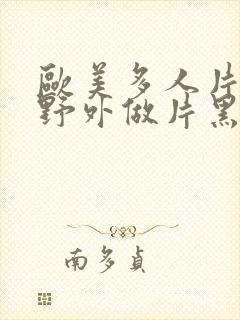 歐美多人片
野外做片黑
南多貞